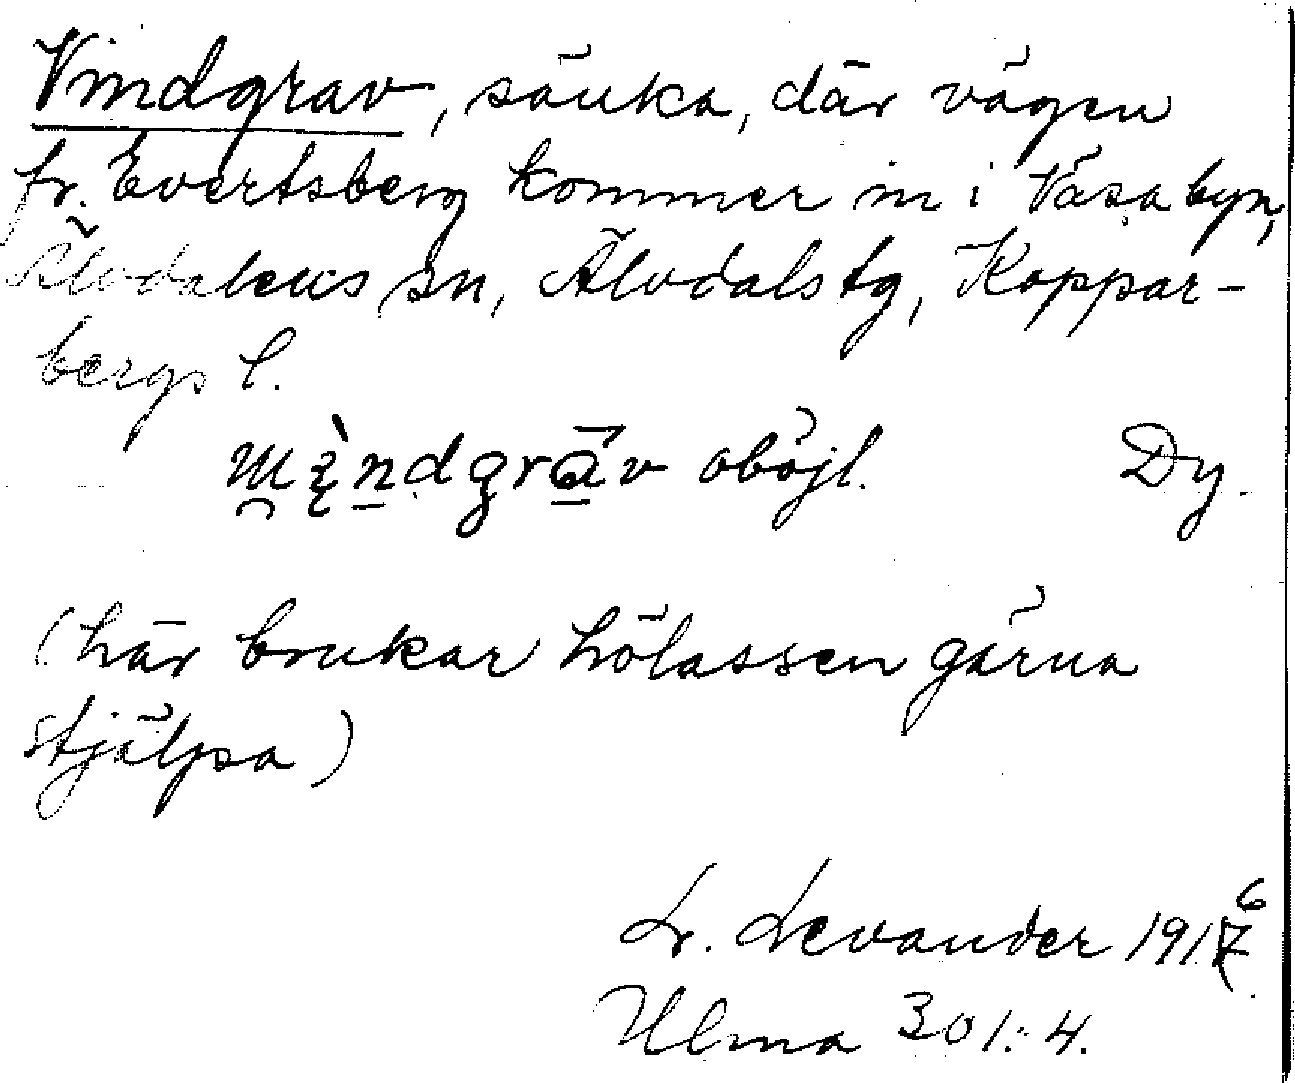 Vindgrav, sänka, där vägen
fr. Evertsberg kommer in i Väsa byn,
Älvdalens sn, Älvdals tg, Koppar-
bergs l.
oböjl. Dy.
(här brukar hölassen gärna
stjälpa)
L. Levander 1916
Ulma 301:4.